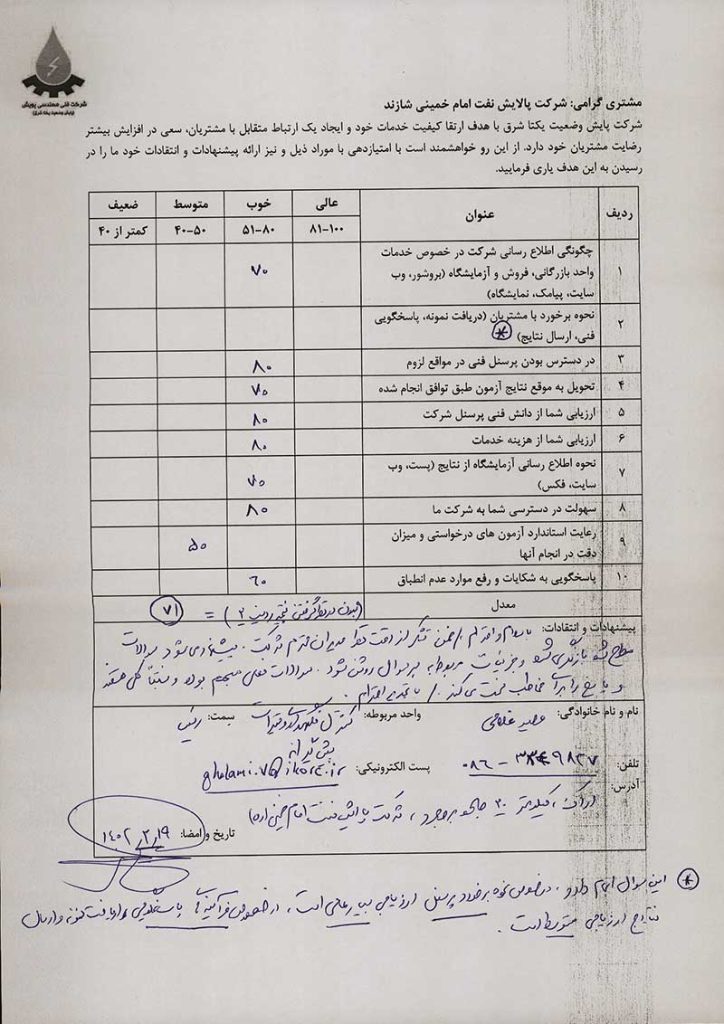 شرکت فنی مهندسی پویش
(پایش وضعیت یکتا شرق)
مشتری گرامی: شرکت پالایش نفت امام خمینی شازند
شرکت پایش وضعیت یکتا شرق با هدف ارتقا کیفیت خدمات خود و ایجاد یک ارتباط متقابل با مشتریان، سعی در افزایش بیشتر
رضایت مشتریان خود دارد. از این رو خواهشمند است با امتیازدهی با موارد ذیل و نیز ارائه پیشنهادات و انتقادات خود ما را در
رسیدن به این هدف یاری فرمایید.
ردیف عنوان عالی خوب متوسط ضعیف
۸۱-۱۰۰ ۵۱-۸۰ ۴۰-۵۰ کمتر از ۴۰
چگونگی اطلاع رسانی شرکت در خصوص خدمات
۱ واحد بازرگانی، فروش و آزمایشگاه (بروشور، وب ۷۰
سایت، پیامک، نمایشگاه)
۲ نحوه برخورد با مشتریان (دریافت نمونه، پاسخگویی
فنی، ارسال نتایج) *
۳ در دسترس بودن پرسنل فنی در مواقع لزوم ۸۰
۴ تحویل به موقع نتایج آزمون طبق توافق انجام شده ۷۰
۵ ارزیابی شما از دانش فنی پرسنل شرکت ۸۰
۶ ارزیابی شما از هزینه خدمات ۸۰
۷ نحوه اطلاع رسانی آزمایشگاه از نتایج (پست، وب ۷۰
سایت، فکس)
۸ سهولت در دسترسی شما به شرکت ما ۸۰
۹ رعایت استاندارد آزمون های درخواستی و میزان ۵۰
دقت در انجام آنها
۱۰ پاسخگویی به شکایات و رفع موارد عدم انطباق ۶۰
معدل (بدون در نظر گرفتن ردیف ۲) = ۷۱
پیشنهادات و انتقادات: با سلام و احترام / ضمن تشکر از دقت نظر مدیران محترم شرکت. پیشنهاد می شود سوالات
و جزئیات مربوط به هر سوال روشن شود. سوالات فعلی مبهم بوده و نسبتاً کلی هستند
و پاسخ را برای مخاطب سخت می کند. / با تجدید احترام.
نام و نام خانوادگی: غلامی واحد مربوطه: کنترل سمت: رئیس
تلفن: ۰۸۶-۳۳۴۹۸۲۷ پست الکترونیکی:
آدرس: اراک، کیلومتر ۲۰ جاده بروجرد، شرکت پالایش نفت امام خمینی (ره)
تاریخ و امضا: ۱۴۰۲,۳,۱۹
* این سوال ابهام دارد. در خصوص نحوه برخورد پرسنل ارزیابی بسیار عالی است، در خصوص فرآیند پاسخگویی دریافت نمونه و ارسال
نتایج ارزیابی متوسط است.